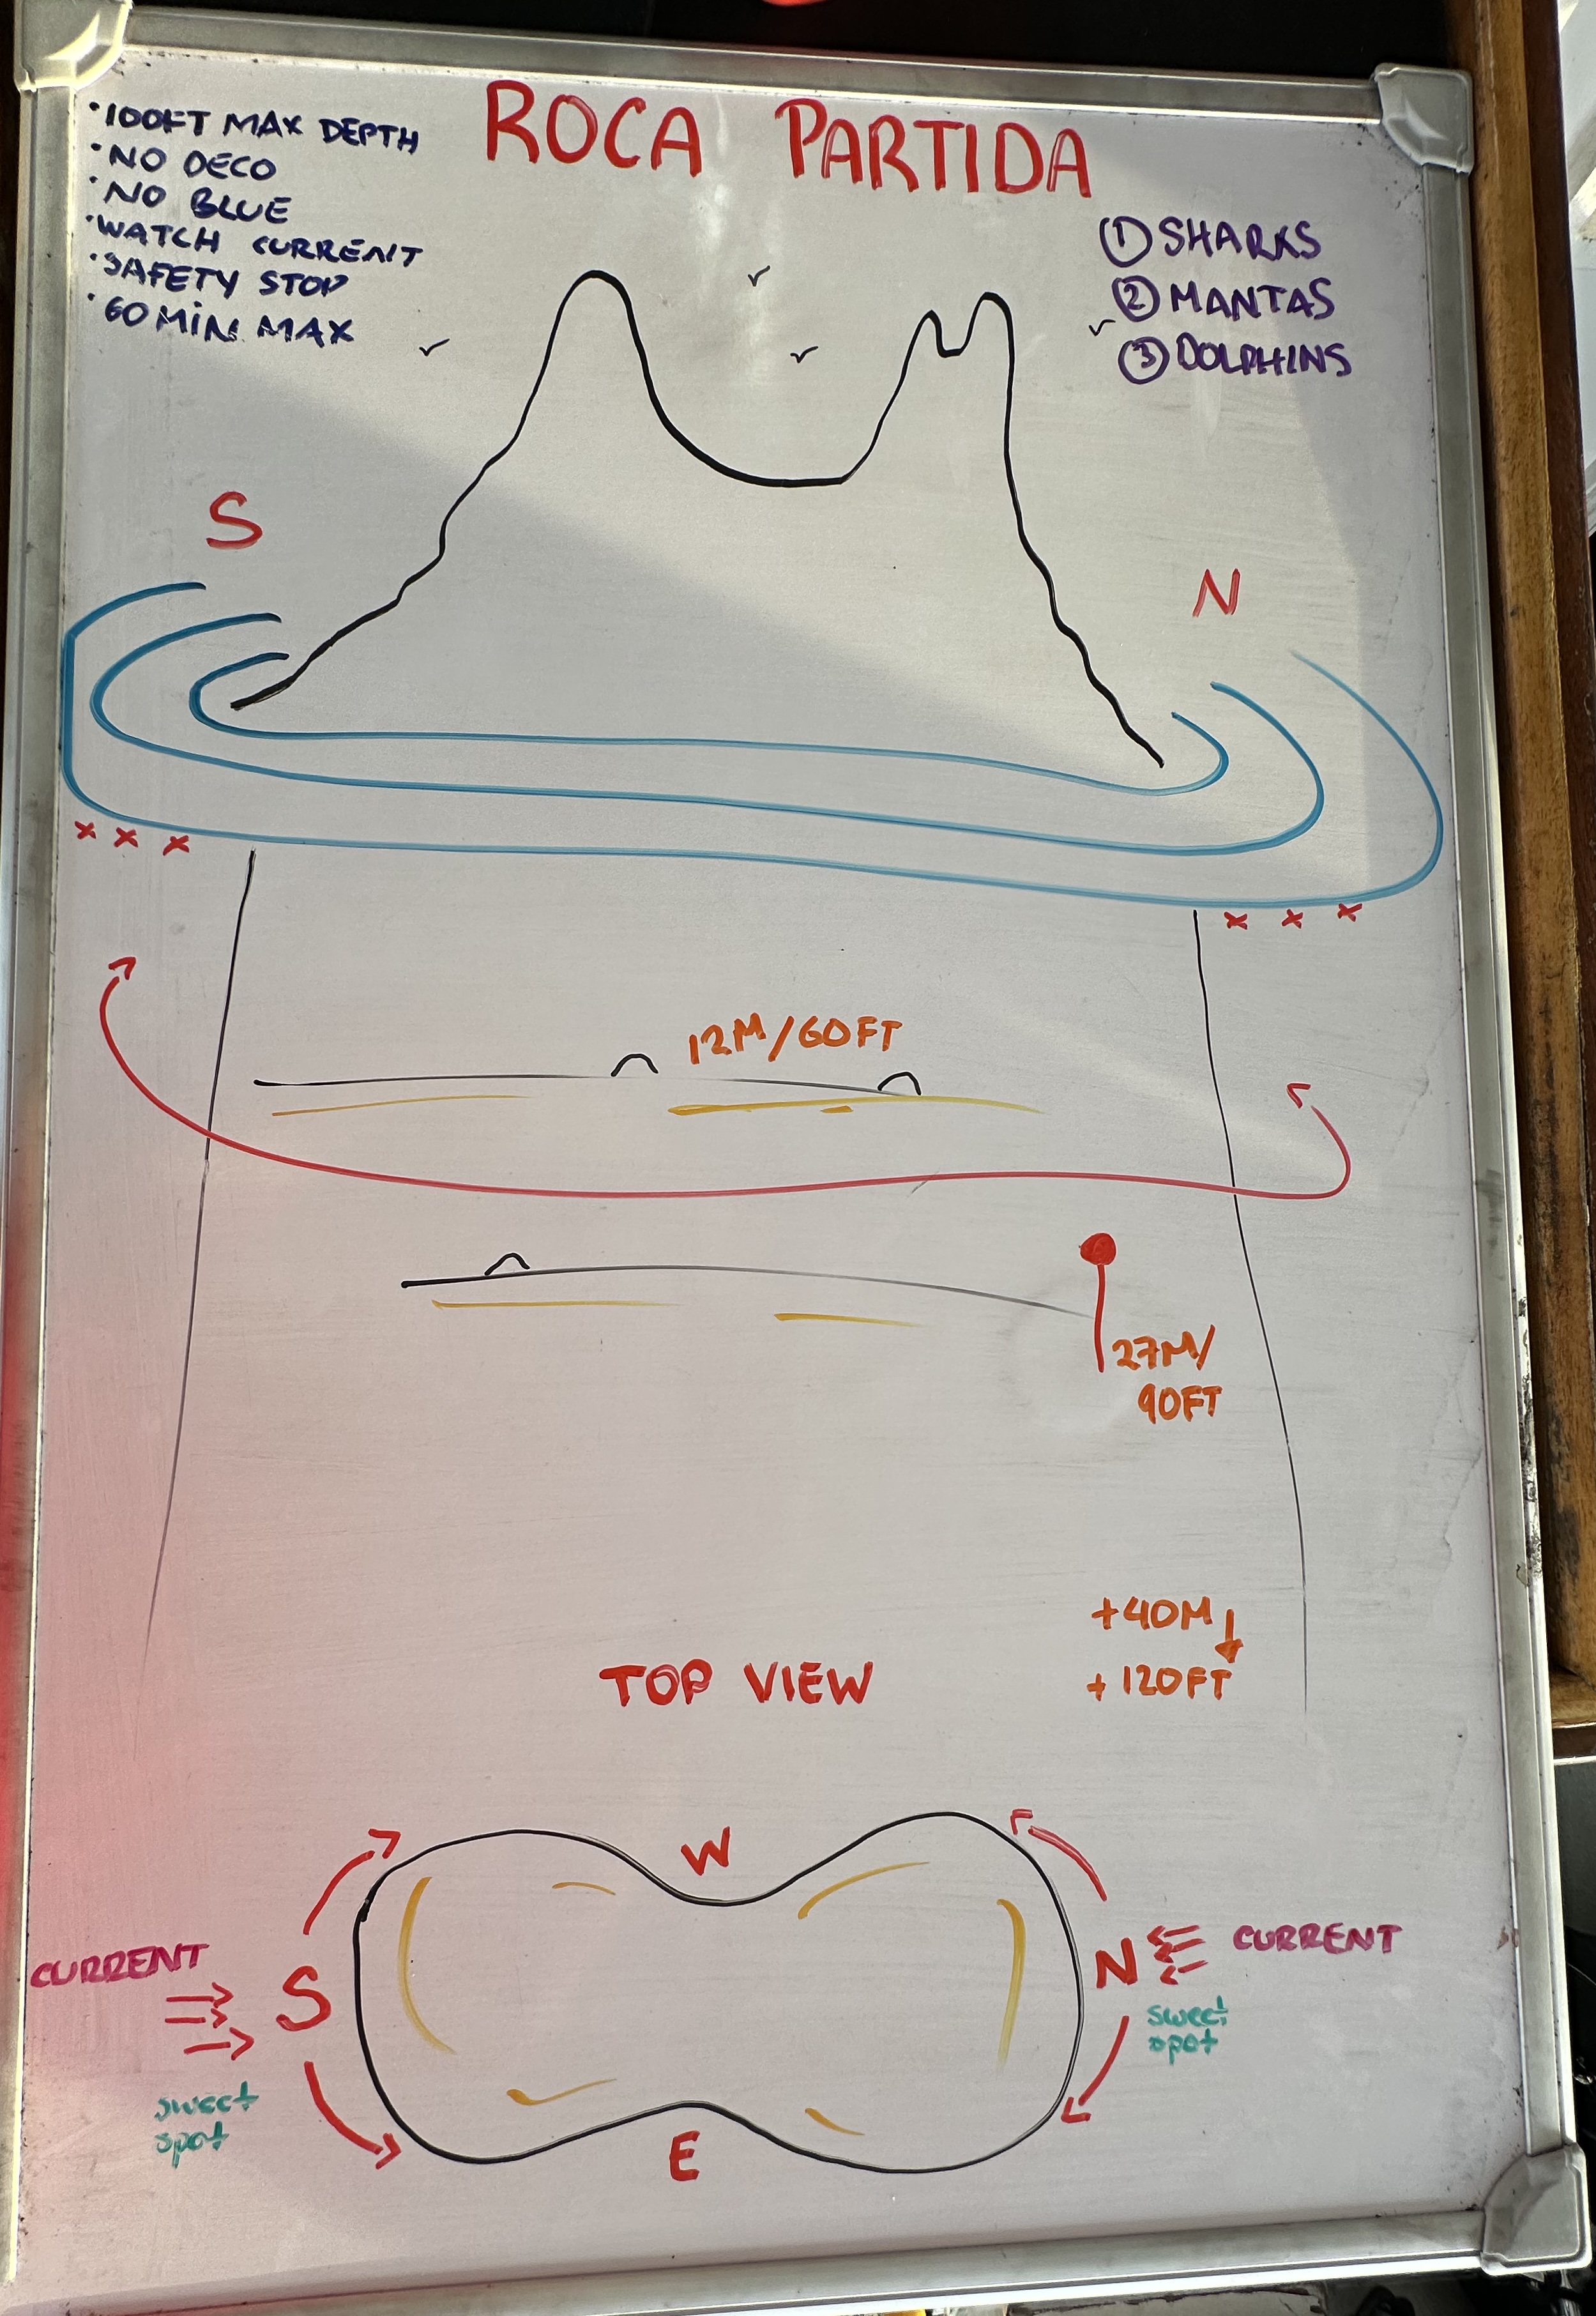 ROCA PARTIDA
•100FT MAX DEPTH
•NO DECO
•NO BLUE
•WATCH CURRENT
•SAFETY STOP
•60 MIN MAX
① SHARKS
② MANTAS
③ DOLPHINS
S
N
x x x
x x x
12M/60FT
27M/
90FT
+40M↓
+120FT
TOP VIEW
W
CURRENT
S
N
CURRENT
sweet
spot
sweet
spot
E